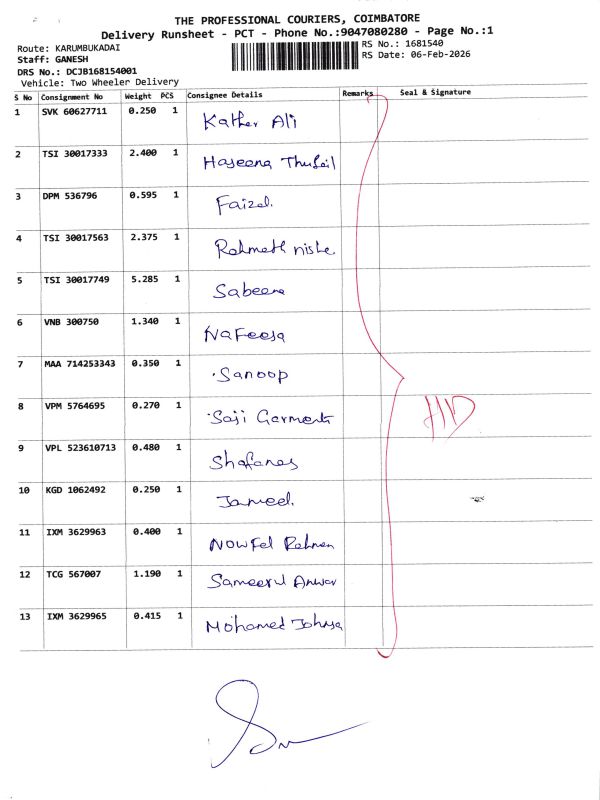 THE PROFESSIONAL COURIERS, COIMBATORE
Delivery Runsheet - PCT - Phone No.:9047080280 - Page No.:1
Route: KARUMBUKADAI
RS No.: 1681540
Staff: GANESH
RS Date: 06-Feb-2026
DRS No.: DCJB168154001
Vehicle: Two Wheeler Delivery
S No Consignment No Weight PCS Consignee Details Remarks Seal & Signature
1 SVK 60627711 0.250 1 Kather Ali
2 TSI 30017333 2.400 1 Haseena Thufail
3 DPM 536796 0.595 1 Faizal.
4 TSI 30017563 2.375 1 Rahmath nisha
5 TSI 30017749 5.285 1 Sabeena
6 VNB 300750 1.340 1 Nafeesa
7 MAA 714253343 0.350 1 Sanoop
8 VPM 5764695 0.270 1 Saji Garments
9 VPL 523610713 0.480 1 Shafanas
10 KGD 1062492 0.250 1 Jameel.
11 IXM 3629963 0.400 1 Nowfel Rahman
12 TCG 567007 1.190 1 Sameerul Anwar
13 IXM 3629965 0.415 1 Mohamed